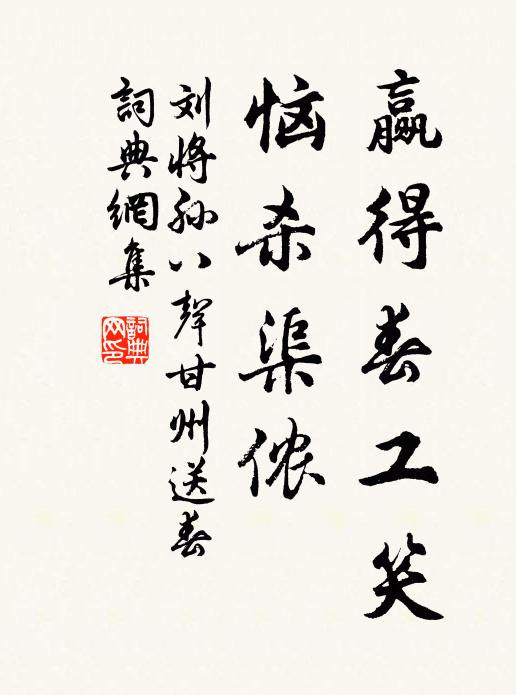 赢得春工笑
恼杀渠侬
刘将孙八聲甘州送春
詞典網集
詞典网印